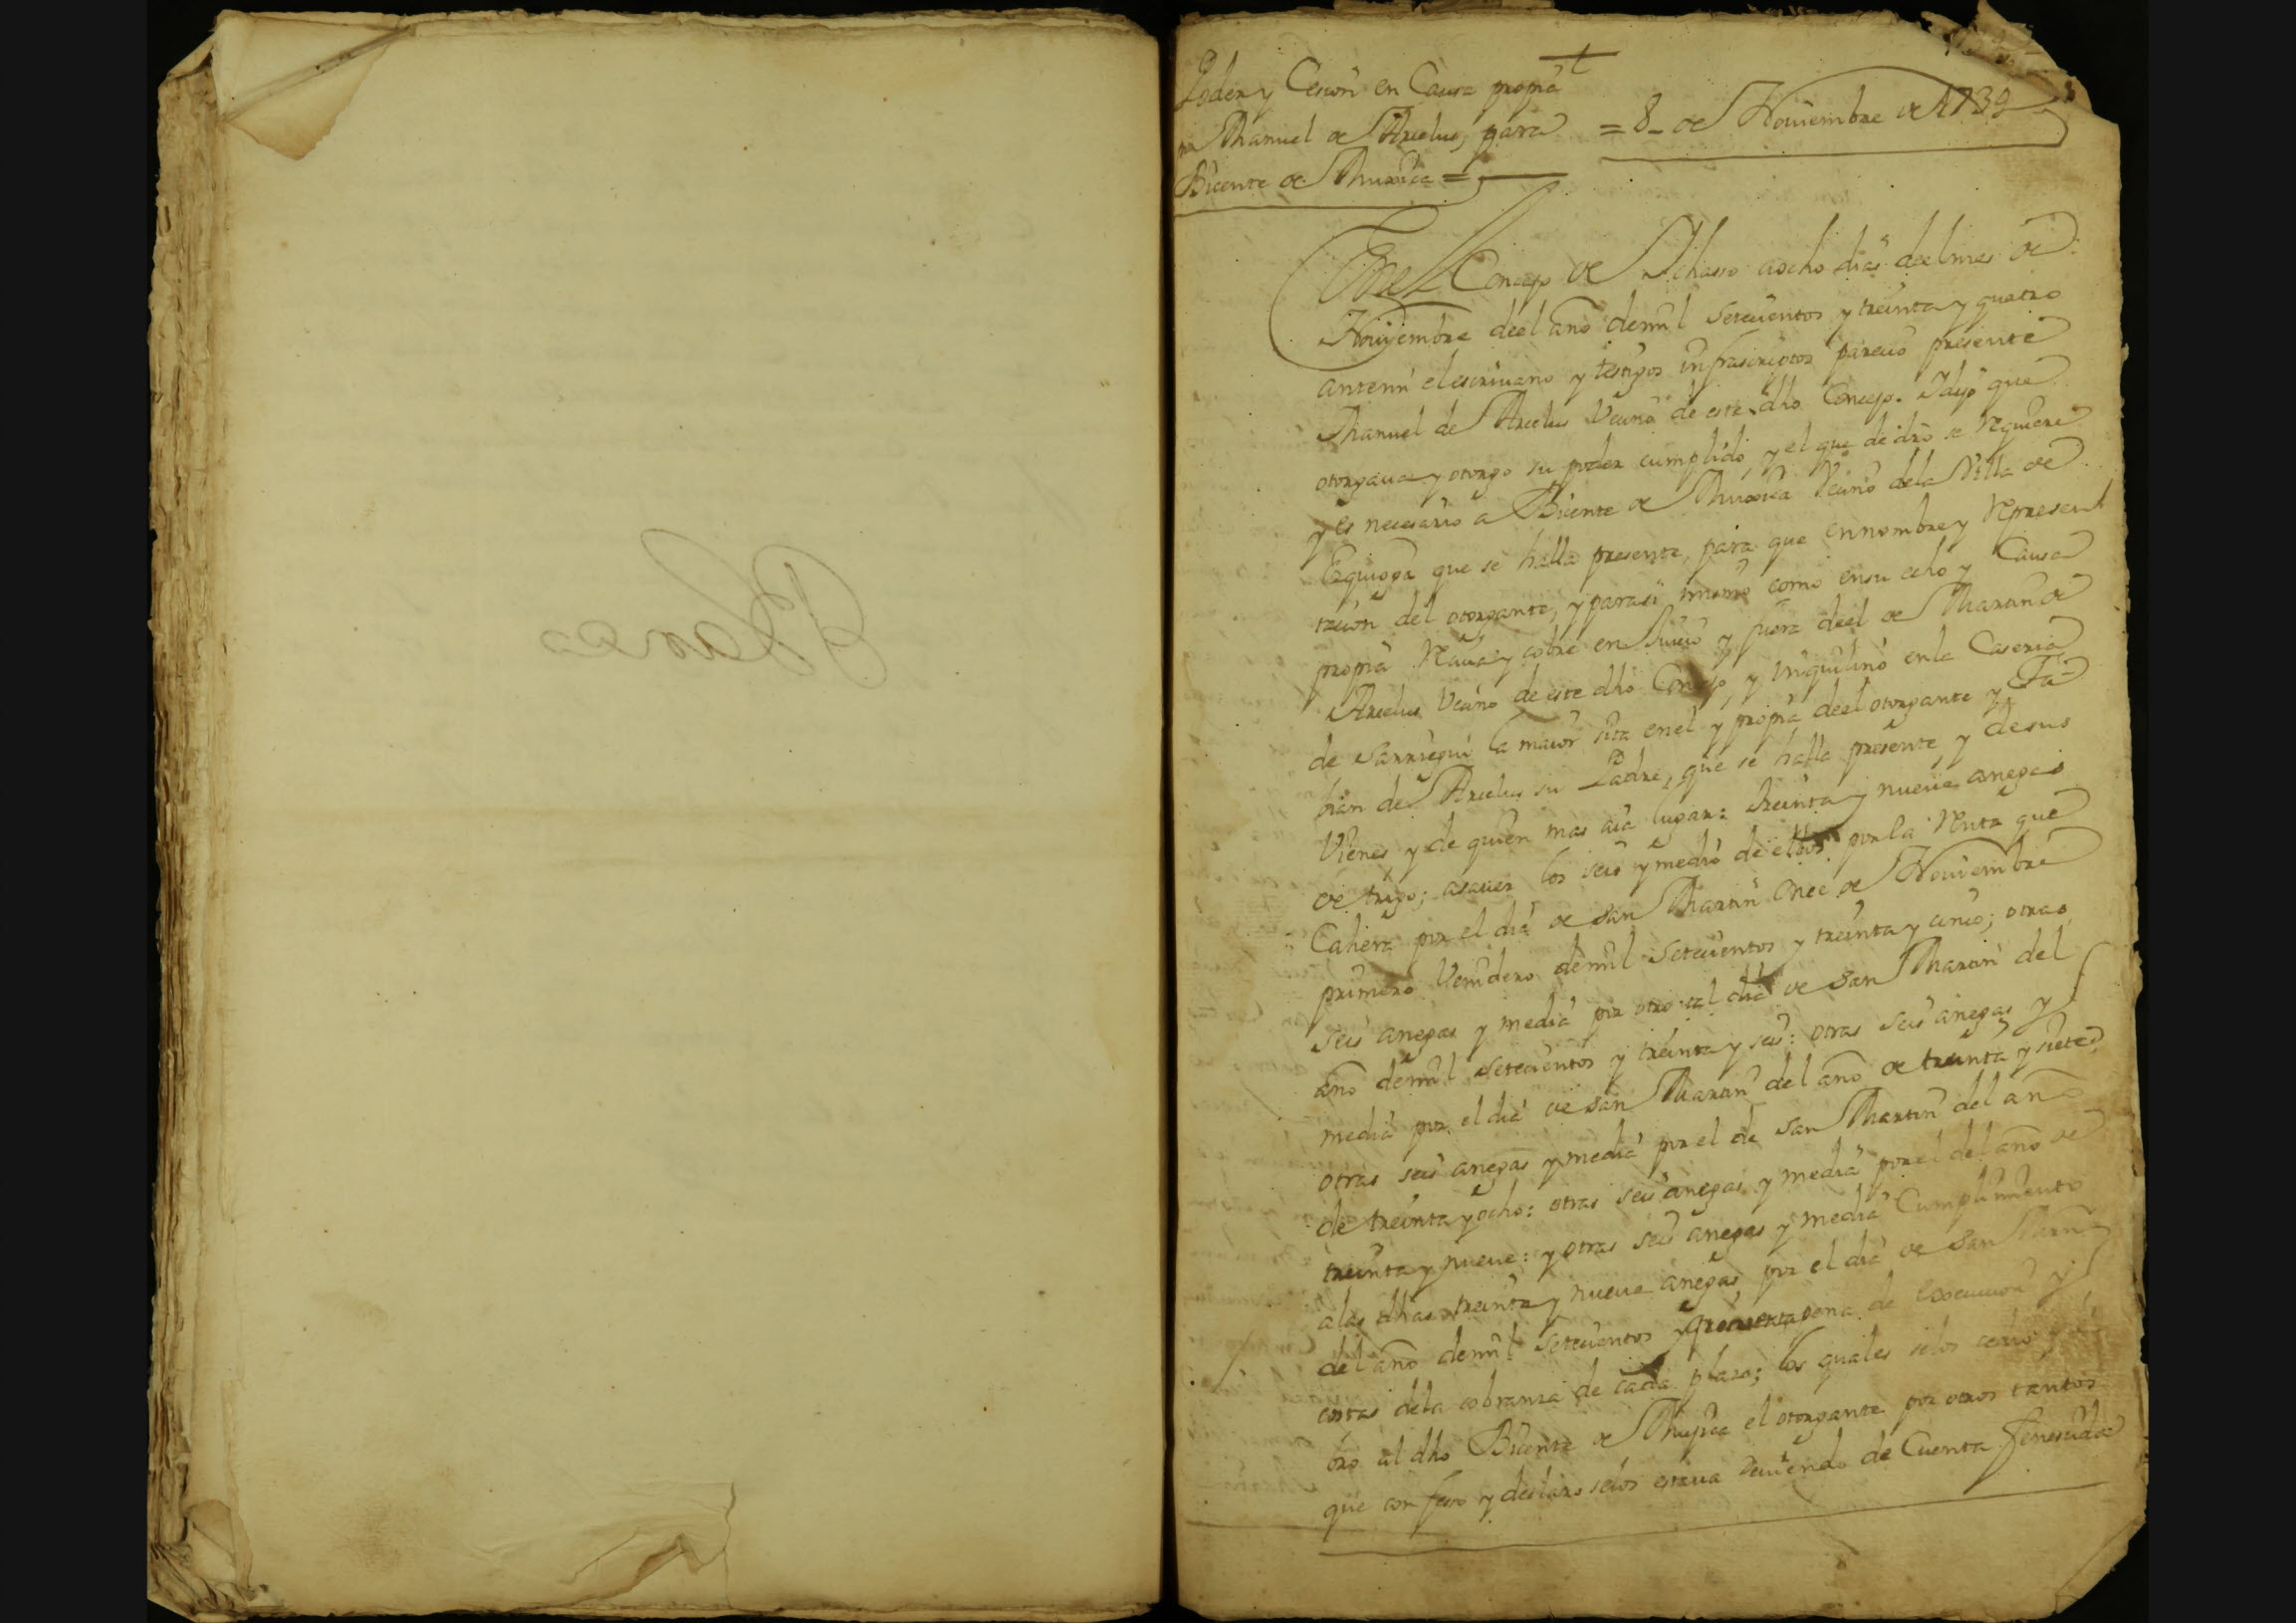 Poder y Cesion en Causa propia
Manuel de Arcelus, para
Bicente de Muxica =
= 8 - de Nouiembre de 1734
En el Concejo de Ichasso aocho dias deel mes de
Nouiembre deel año demil setecientos y treinta y quatro
antemi elescriuano y testigos infrascriptos parecio presente
Manuel de Arcelus Vecino de este dho Concejo. Y dijo que
otorgaua y otorgo su poder cumplido y el que de dro se requiere
y es necesario a Bicente de Muxica Vecino dela Villa de
Ezquioga que se halla presente, para que en nombre y represen
tacion del otorgante, y parasi mismo como ensu echo y Causa
propia reciua y cobre en Juicio y fuera deel de Martin de
Arcelus Vecino de este dho Concejo y Inquilino en la Caseria
de Sarriegui la maior sita enel y propia deel otorgante y Fa-
bian de Arcelus su Padre, que se halla presente y de sus
Vienes y de quien mas aia lugar: treinta y nueue anegas
de trigo; asauer los seis y medio de ellos por la renta que
Cahera por el dia de san Martin Onee de Nouiembre
primero Venidero demil setecientos y treinta y cinco; otras
seis anegas y media por otro tal dia de san Martin del
año demil setecientos y treinta y seis: otras seis anegas y
media por el dia de san Martin del año de treinta y siete
otras seis anegas y media por el de san Martin del año
de treinta y ocho: otras seis anegas y media por el del año de
treinta y nueue: y otras seis anegas y media Cumplimiento
alas dhas treinta y nueue anegas, por el dia de san Martin
del año demil setecientos y quarenta pena de Execucion y
costas dela cobranza de cada plazo; los quales selos cedio y
bro al dho Bicente de Mujica el otorgante por otros tantos
que confeso y declaro selos estaua deuiendo de Cuenta fenecida